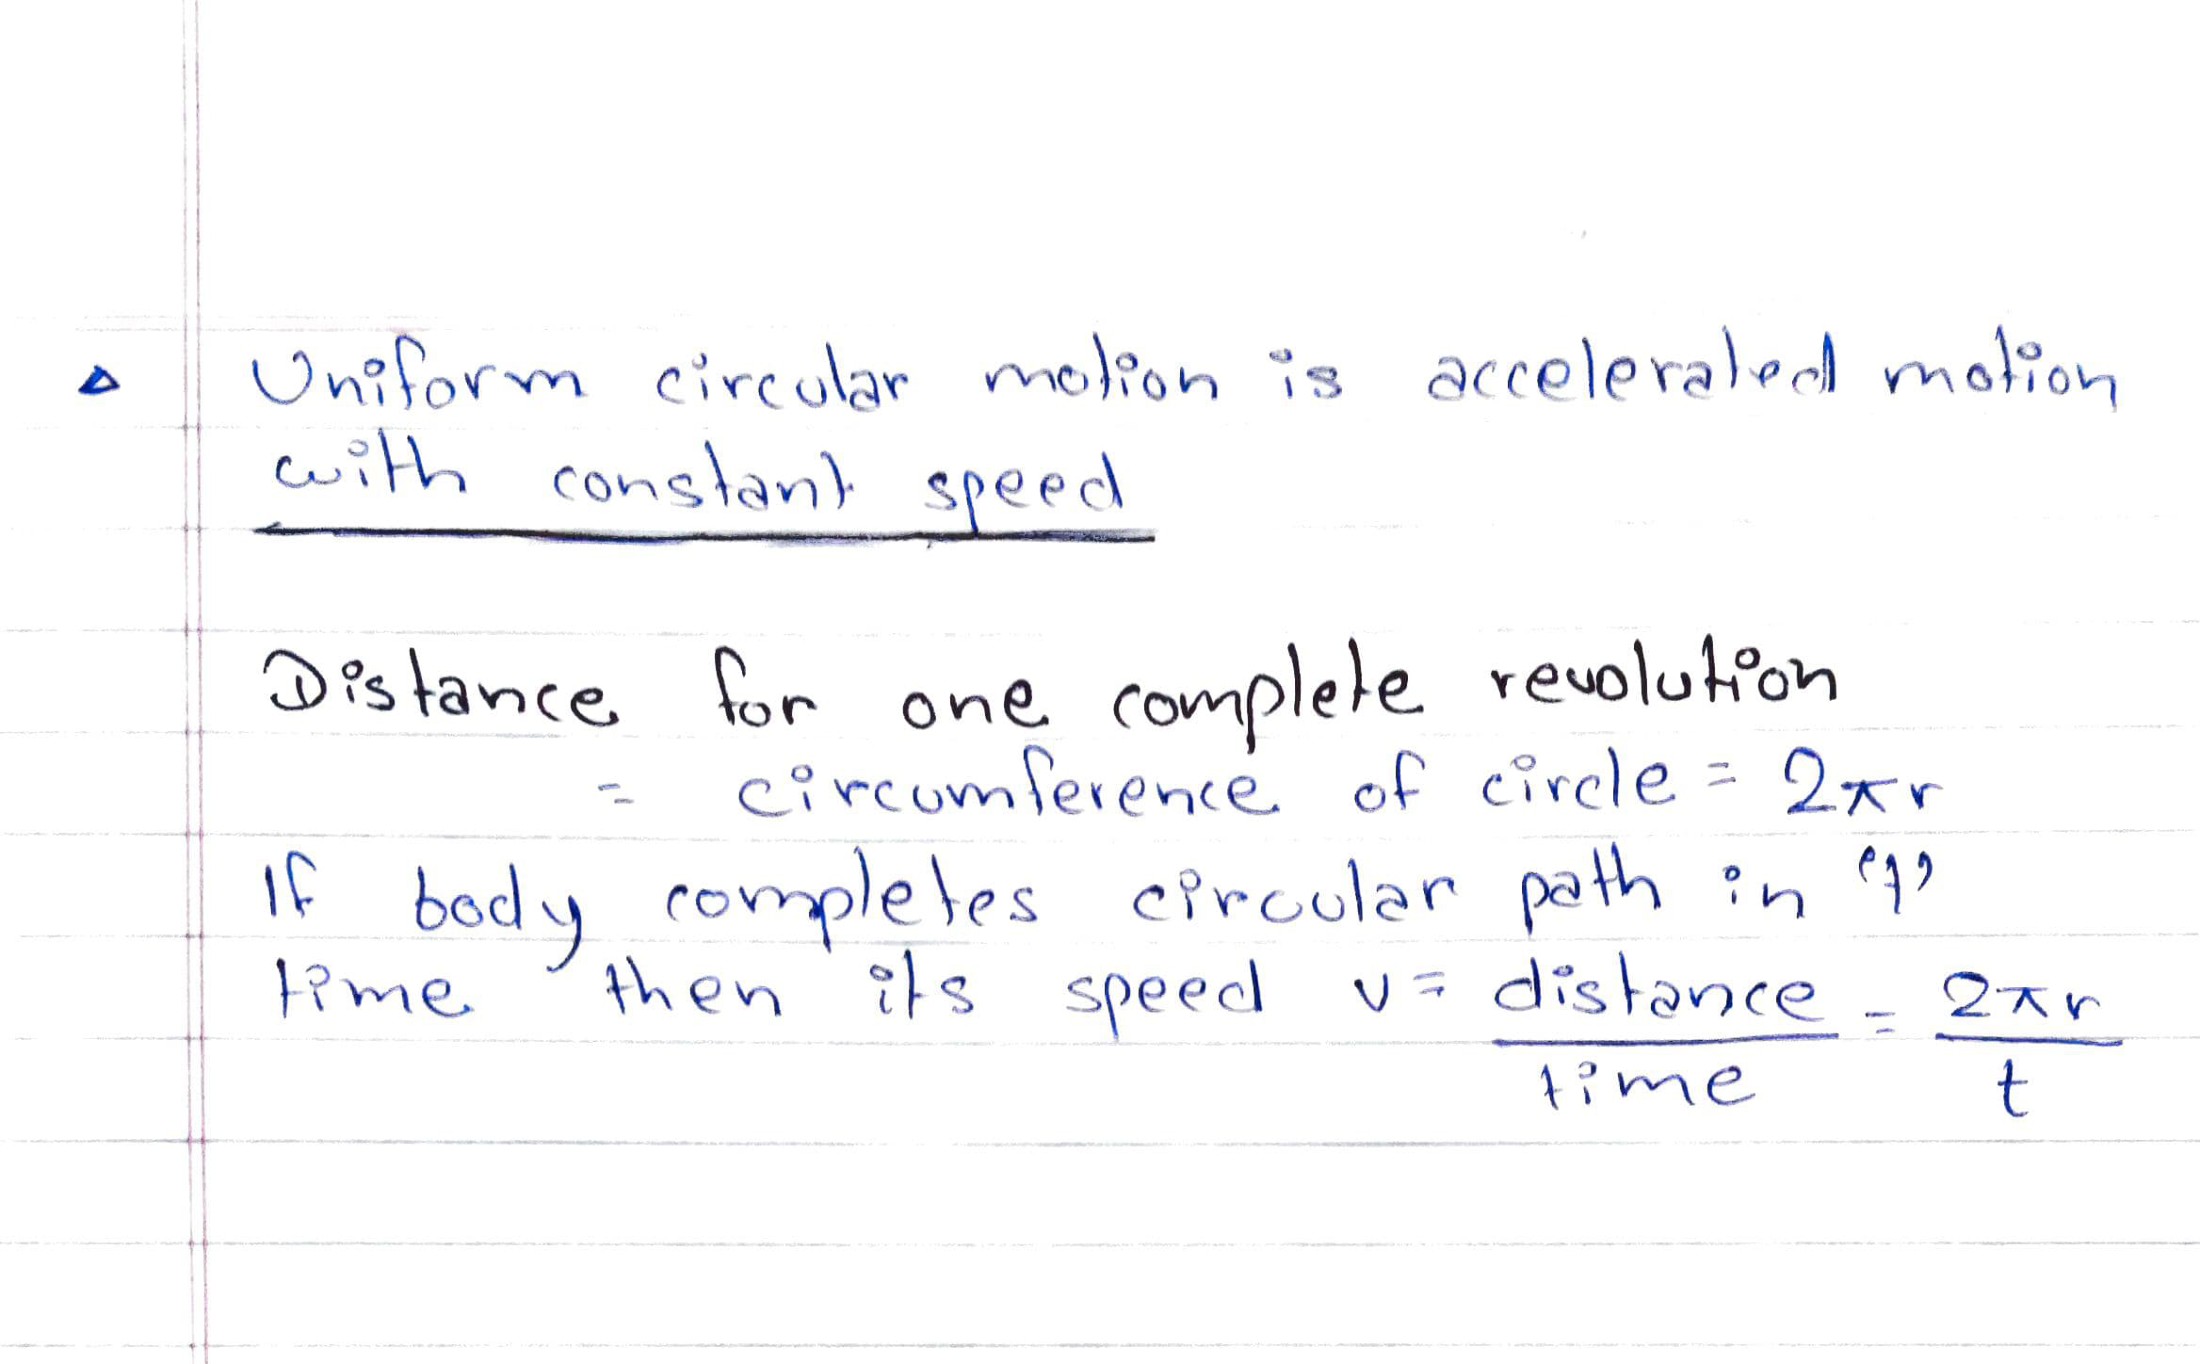 Uniform circular motion is accelerated motion
with constant speed
Distance for one complete revolution
= circumference of circle = 2πr
If body completes circular path in 't'
time then its speed v = distance/time = 2πr/t